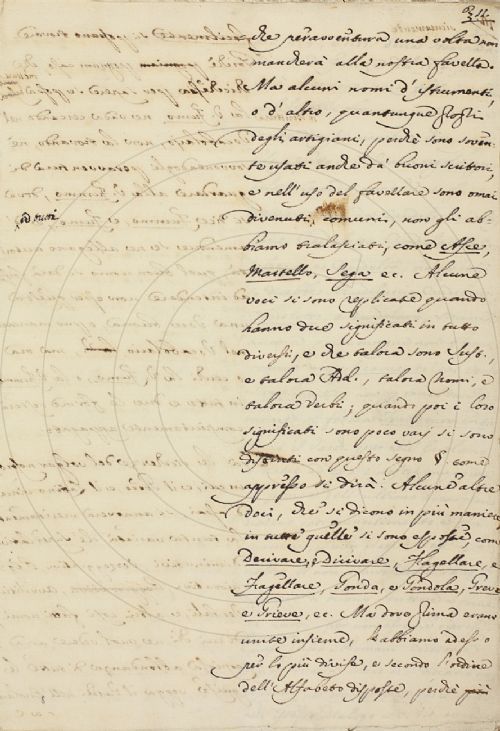 che peravventura una volta non
mancherà alla nostra favella.
Ma alcuni nomi d'istrumenti,
o d'altro, quantunque
degli artigiani, perchè sono soven-
te usati anche da' buoni scrittori,
e nell'uso del favellare sono omai
divenuti comuni, non gli ab-
biamo tralasciati, come Asce,
Martello, Sega ec. Alcune
voci si sono replicate quando
hanno due significati in tutto
diversi, e che talora sono Sust.
e talora Ad., talora Nomi, e
talora Verbi; quando poi i loro
significati sono poco varj si sono
con questo segno § come
appresso si dirà. Alcune altre
voci, che si dicono in più maniere
in tutte quelle si sono esposte, come
Derivare, e Dirivare, Flagellare, e
Fragellare, Gonda, e Gondola, Greve
e Grieve, ec. Ma dove prima erano
unite insieme, le abbiamo adesso
per lo più divise, e secondo l'ordine
dell'Alfabeto disposte, perchè più